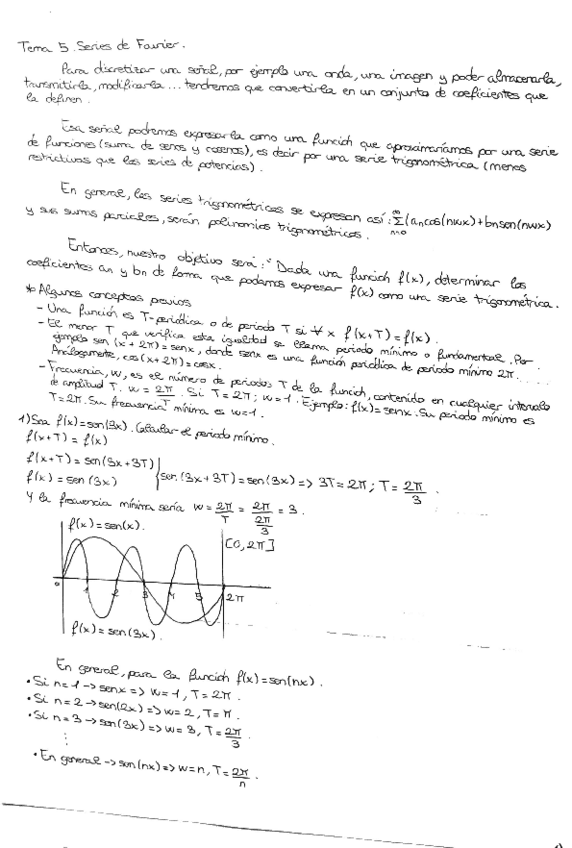 Tema 5. Series de Fourier.
Para discretizar una señal, por ejemplo una onda, una imagen y poder almacenarla,
transmitirla, modificarla... tendremos que convertirla en un conjunto de coeficientes que
la definen.
Esa señal podremos expresarla como una función que aproximaríamos por una serie
de funciones (suma de senos y cosenos), es decir por una serie trigonométrica (menos
restrictivas que las series de potencias).
En general, las series trigonométricas se expresan así: ∑_{n=0}^{∞} (an cos(nwx) + bn sen(nwx)
y sus sumas parciales, serán polinomios trigonométricos.
Entonces, nuestro objetivo será: "Dada una función f(x), determinar los
coeficientes an y bn de forma que podamos expresar f(x) como una serie trigonométrica.
* Algunos conceptos previos
- Una función es T-periódica o de periodo T si ∀ x f(x+T) = f(x).
- El menor T que verifica esta igualdad se llama periodo mínimo o fundamental. Por
ejemplo sen (x + 2π) = senx, donde senx es una función periódica de periodo mínimo 2π.
Análogamente, cos(x + 2π) = cosx.
- Frecuencia, w, es el número de periodos T de la función, contenido en cualquier intervalo
de amplitud T. w = 2π/T. Si T = 2π; w = 1. Ejemplo: f(x) = senx. Su periodo mínimo es
T = 2π. Su frecuencia mínima es w = 1.
1) Sea f(x) = sen(3x). Calcular el periodo mínimo.
f(x+T) = f(x)
f(x+T) = sen(3x + 3T)
f(x) = sen (3x) } sen (3x + 3T) = sen(3x) => 3T = 2π; T = 2π/3.
Y la frecuencia mínima sería w = 2π/T = 2π/(2π/3) = 3.
f(x) = sen(x).
[0, 2π]
0 1 2 3 4 5 2π
f(x) = sen(3x).
En general, para la función f(x) = sen(nx).
• Si n = 1 -> senx => w = 1, T = 2π.
• Si n = 2 -> sen(2x) => w = 2, T = π.
• Si n = 3 -> sen(3x) => w = 3, T = 2π/3.
⋮
• En general -> sen(nx) => w = n, T = 2π/n.